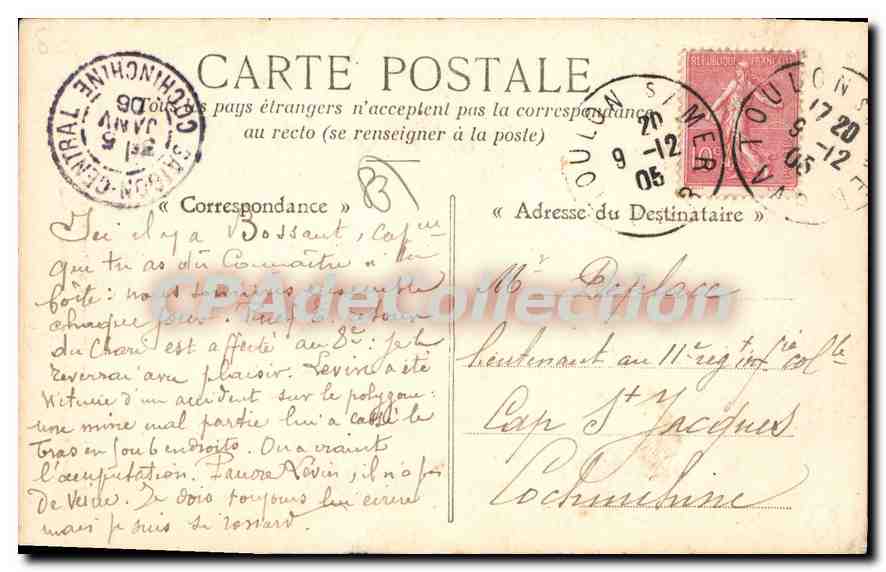 CARTE POSTALE
Tous les pays étrangers n'acceptent pas la correspondance
au recto (se renseigner à la poste)
SAIGON-CENTRAL
COCHINCHINE
5
JANV
06
TOULON S/MER
20
9-12
05
RÉPUBLIQUE FRANÇAISE
10c
TOULON S/MER
VAR
1720
9-12
05
« Correspondance »
Ici il y a Bossant, cap
que tu as dû connaître à la
boîte : nous sommes ensemble
chaque jour. de retour
du Chari est affecté au 8e : je le
reverrai avec plaisir. Levin a été
victime d'un accident sur le polygone :
une mine mal partie lui a cassé le
bras en 5 ou 6 endroits. On a craint
l'amputation. Pauvre Levin, il n'a pas
de veine. Je dois toujours lui écrire
mais je suis si rossard.
« Adresse du Destinataire »
Mr Deplace
Lieutenant au 11e régt infie colle
Cap St Jacques
Cochinchine
CPADeCollection